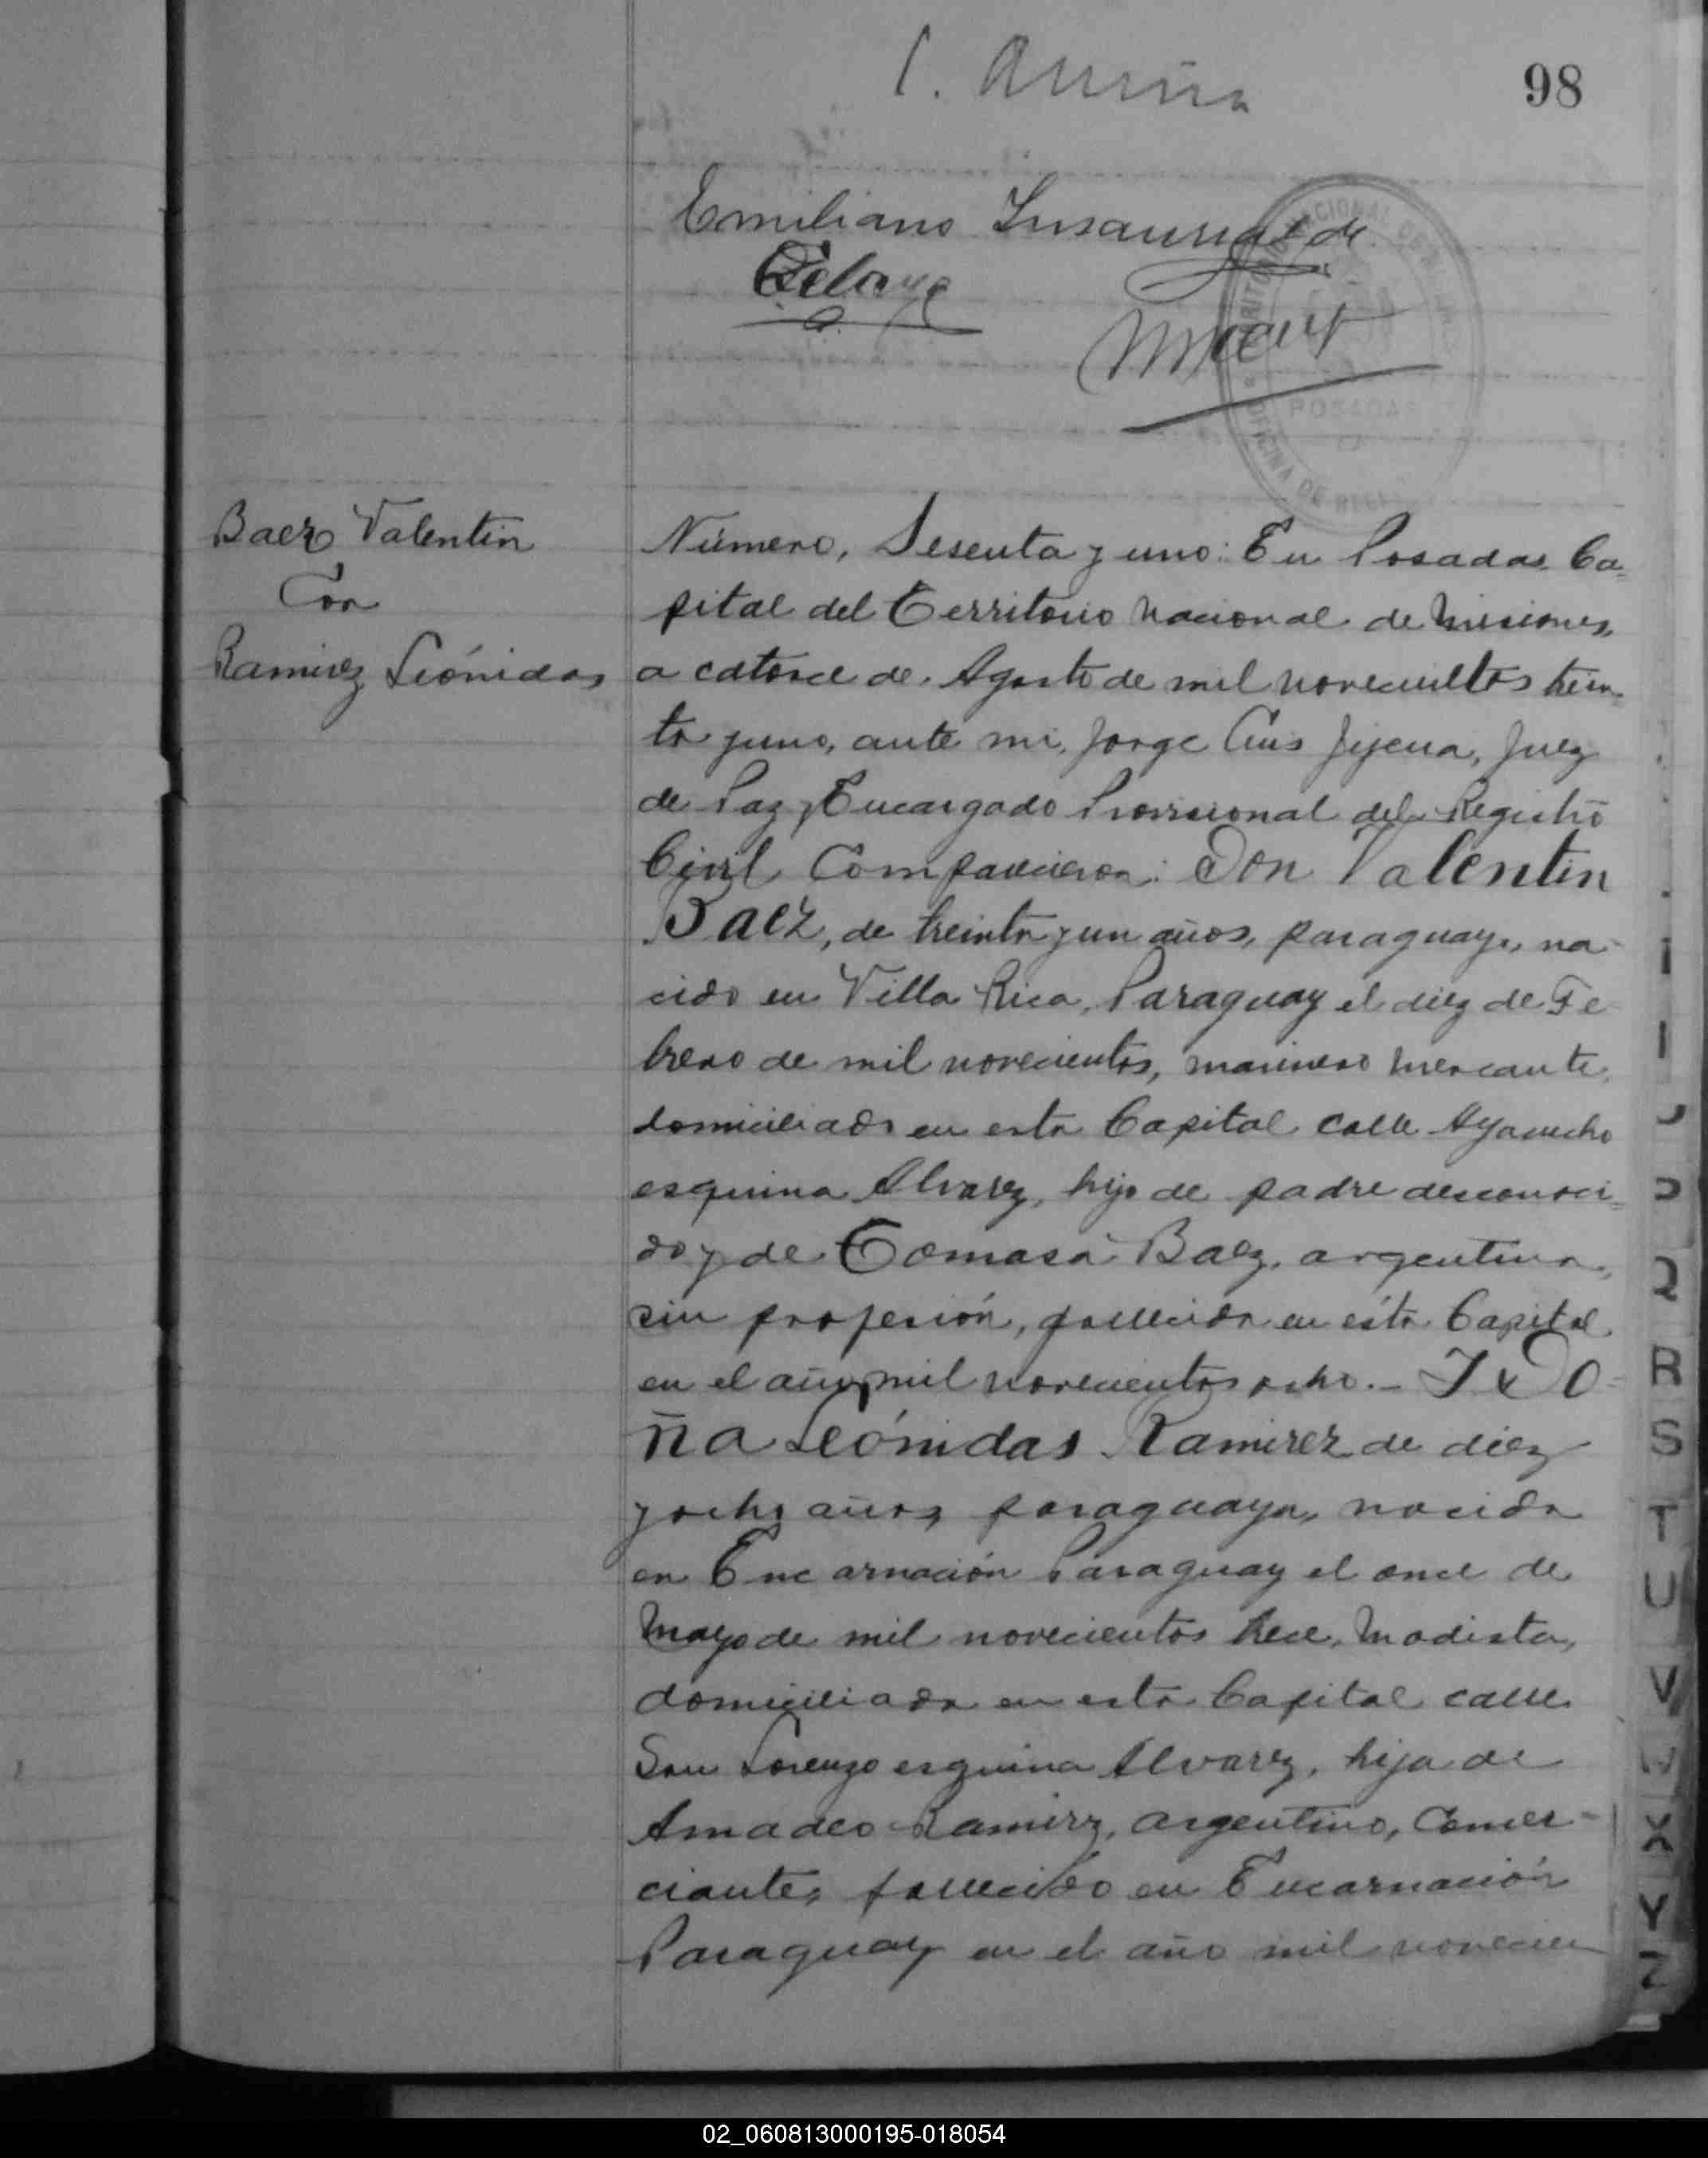 98
Emiliano Insaurralde
Baez Valentin
Con
Ramirez Leónidas
Número, Sesenta y uno: En Posadas Ca=
pital del Territorio Nacional de Misiones,
a catorce de Agosto de mil novecientos trein-
ta y uno, ante mi, Jorge Luis Jijena, Juez
de Paz y Encargado Provisional del Registro
Civil Comparecieron: Don Valentin
Baez, de treinta y un años, paraguayo, na-
cido en Villa Rica, Paraguay el diez de Fe
brero de mil novecientos, marinero mercante,
domiciliado en esta Capital calle Ayacucho
esquina Alvarez, hijo de padre desconoci=
do y de Tomasa Baez, argentina,
sin profesión, fallecida en esta Capital
en el año mil novecientos ocho.- Y Do-
ña Leónidas Ramirez de diez
y ocho años, paraguaya, nacida
en Encarnación Paraguay el once de
Mayo de mil novecientos trece, Modista,
domiciliada en esta Capital calle
San Lorenzo esquina Alvarez, hija de
Amadeo Ramirez, argentino, Comer-
ciante, fallecido en Encarnación
Paraguay en el año mil novecien
POSADAS
OFICINA DE
Q
R
S
T
U
V
W
X
Y
Z
02_060813000195-018054